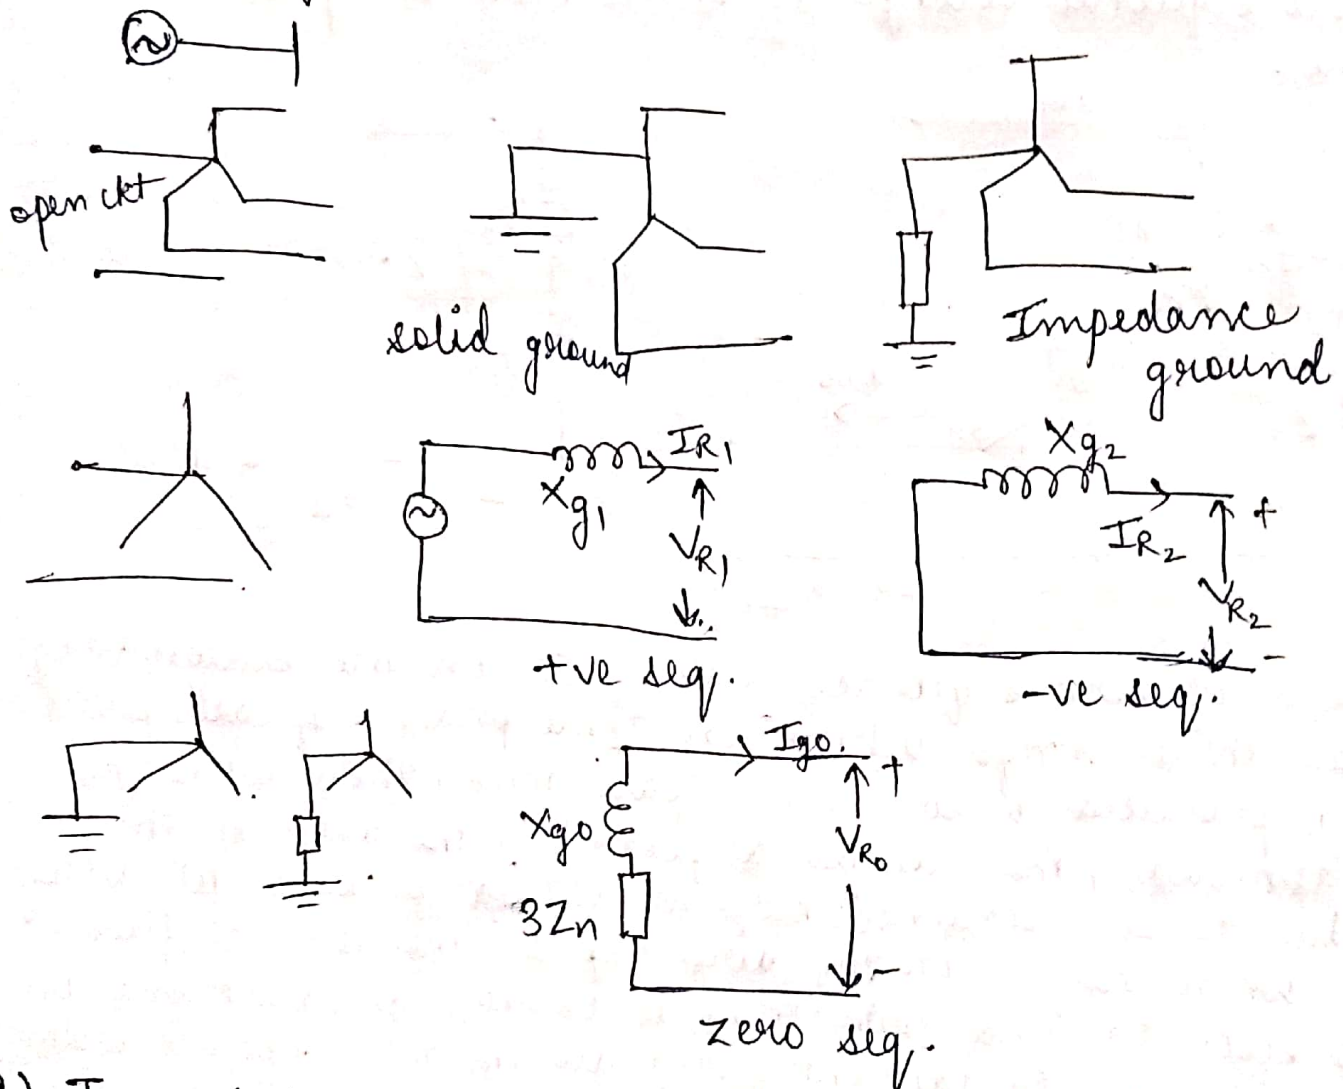 open ckt
solid ground
Impedance
ground
I_R1
X_g1
V_R1
+ve seq.
X_g2
I_R2
+
V_R2
-
-ve seq.
I_g0.
+
X_g0
V_R0
3Zn
-
zero seq.